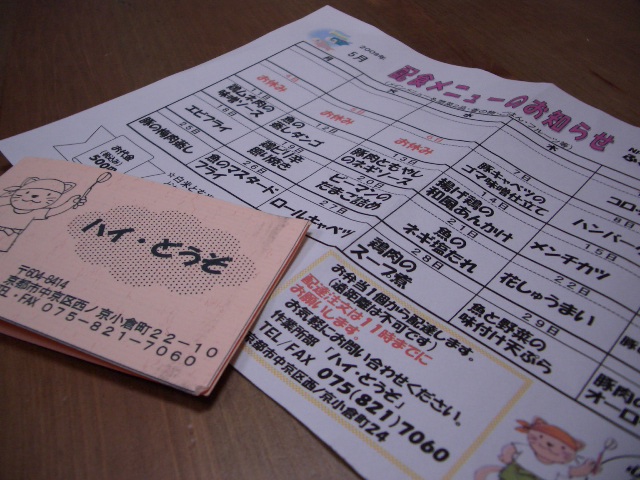 2009年
5月
配食メニューのお知らせ
月
木
お休み
お休み
お休み
7日
8日
豚キャベツの
ゴマ味噌仕立て
コロ
味噌ソース
魚の
蒸しタンゴ
13日
豚肉ともやしの
ネギソース
揚げ鶏の
和風あんかけ
15日
ハンバー
エビフライ
照り焼き
20日
ピーマンの
たまご詰め
21日
魚の
ネギ塩だれ
22日
メンチカツ
豚の梅肉蒸し
魚のマスタード
フライ
27日
ロールキャベツ
28日
鶏肉の
スープ煮
29日
花しゅうまい
魚と野菜の
味付け天ぷら
豚肉の
オーロ
お弁当1個から配達します。
(遠距離は不可です)
配達注文は11時までに
お願いします。
お気軽にお問い合わせください。
作業所部 「ハイどうぞ」
TEL/FAX 075(821)7060
京都市中京区西ノ京小倉町24
ハイ・どうぞ
〒604-8414
京都市中京区西ノ京小倉町22-10
TEL・FAX 075-821-7060